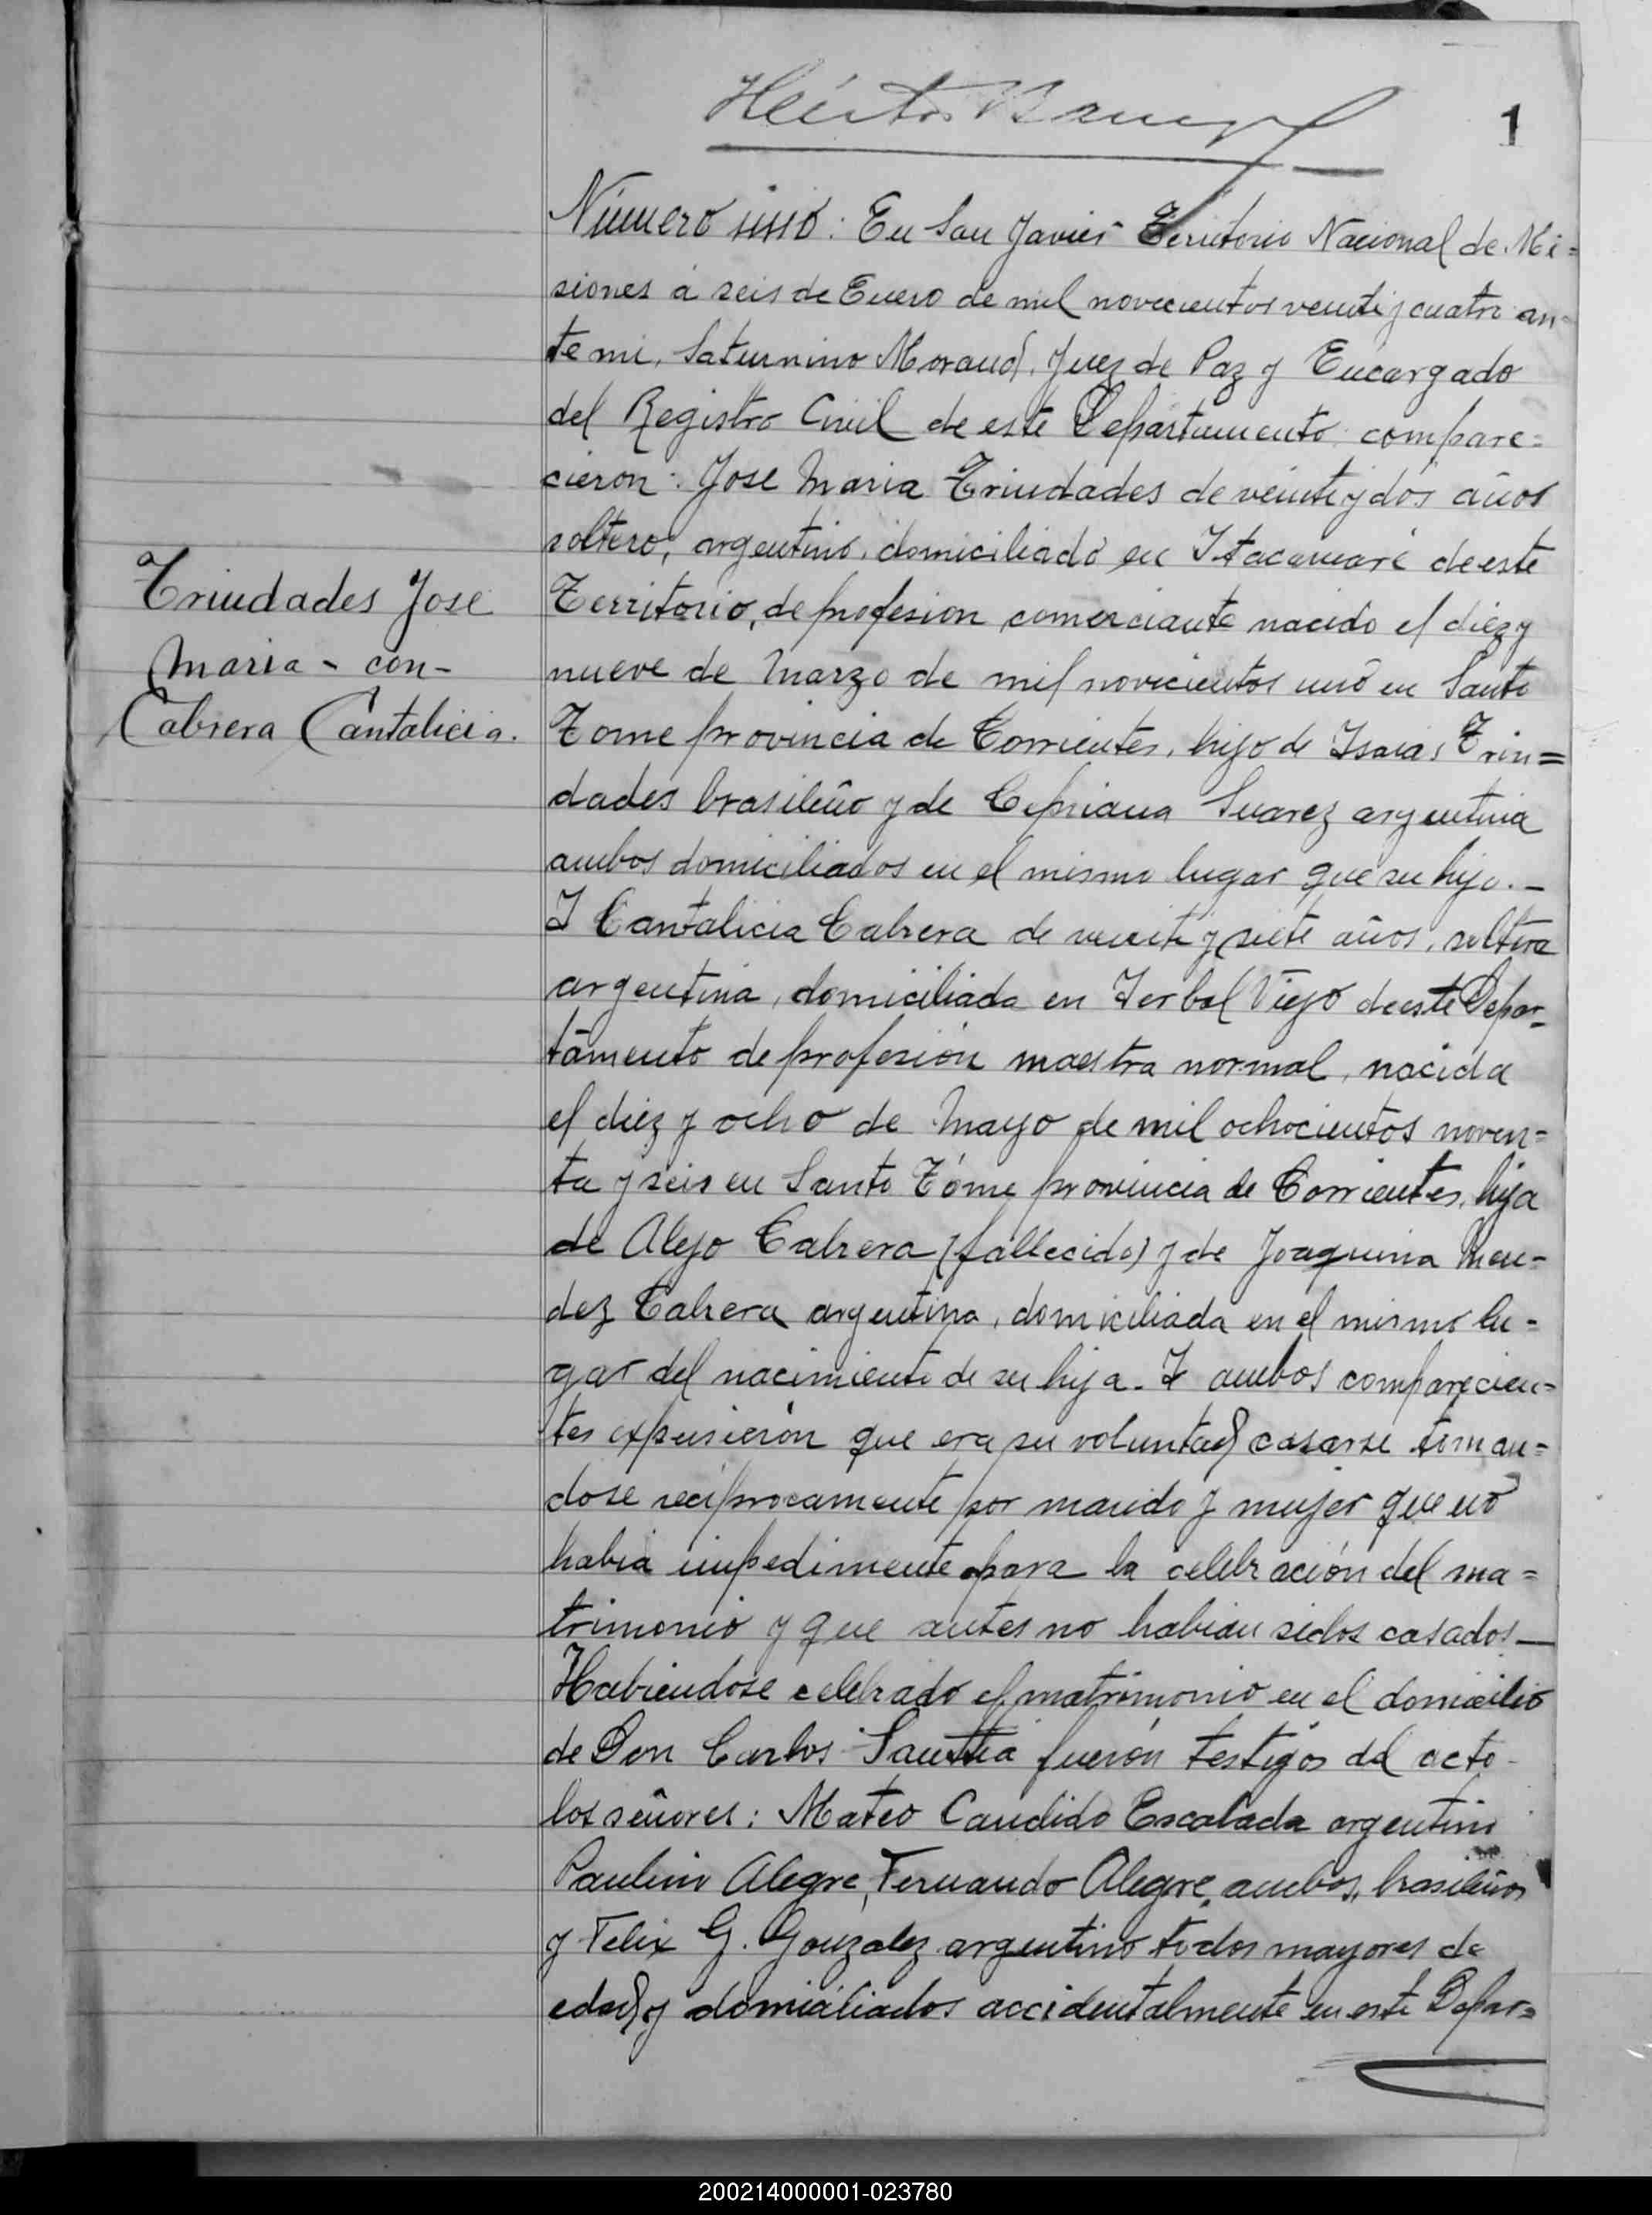 1
Número uno: En San Javier Territorio Nacional de Mi=
siones á seis de Enero de mil novecientos veinte y cuatro an-
te mi, Saturnino Moraud, Juez de Paz y Encargado
del Registro Civil de este Departamento: compare=
cieron: Jose Maria Trindades de veinte y dos años
soltero, argentino, domiciliado en Itacaruaré de este
Territorio, de profesion comerciante nacido el diez y
nueve de Marzo de mil novecientos uno en Santo
Tome provincia de Corrientes, hijo de Isaias Trin=
dades brasileño y de Cipriana Suarez argentina
ambos domiciliados en el mismo lugar que su hijo.-
I Cantalicia Cabrera de veinte y siete años, soltera
argentina, domiciliada en Yerbal Viejo de este Depar-
tamento de profesión maestra normal, nacida
el diez y ocho de Mayo de mil ochocientos noven=
ta y seis en Santo Tóme provincia de Corrientes, hija
de Alejo Cabrera (fallecido) y de Joaquina Men-
dez Cabrera argentina, domiciliada en el mismo lu-
gar del nacimiento de su hija. I ambos comparecien=
tes expusierón que era su voluntad casarse toman=
dose recíprocamente por marido y mujer que no
habia impedimente para la celebración del ma=
trimonio y que antes no habian sidos casados-
Habiendose celebrado el matrimonio en el domicilio
de Don Carlos fuerón testigos del acto-
los señores: Mateo Candido Escalada argentino
Paulino Alegre, Fernando Alegre, ambos, brasileños
y Felix G. Gonzalez argentino todos mayores de
edad y domiciliados accidentalmente en este Depar=
Trindades Jose
Maria - con-
Cabrera Cantalicia.
200214000001-023780